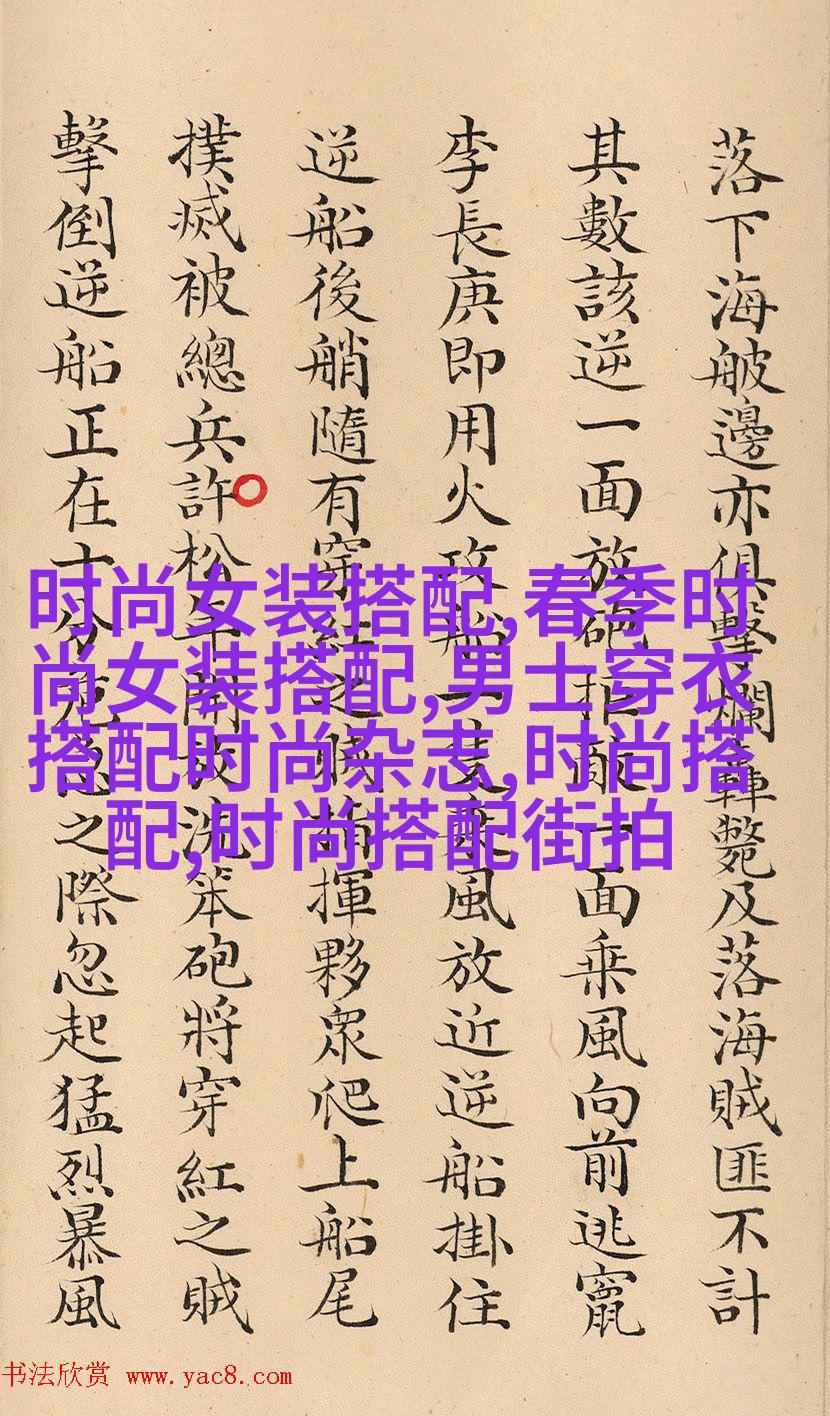 落下海䑨邊亦俱擊爛轟斃及落海賊匪不計
其數該逆一面放砲拒敵一面乘風向前逃竄
李長庚即用火攻船一隻乘風放近逆船掛住
逆船後艄隨有穿紅之賊指揮夥眾爬上船尾
撲滅被總兵許松年開放洗笨砲將穿紅之賊
擊倒逆船正在十分危急之際忽起猛烈暴風
时尚女装搭配,春季时
尚女装搭配,男士穿衣
搭配时尚杂志,时尚搭
配,时尚搭配街拍
书法欣赏 www.yac8.com